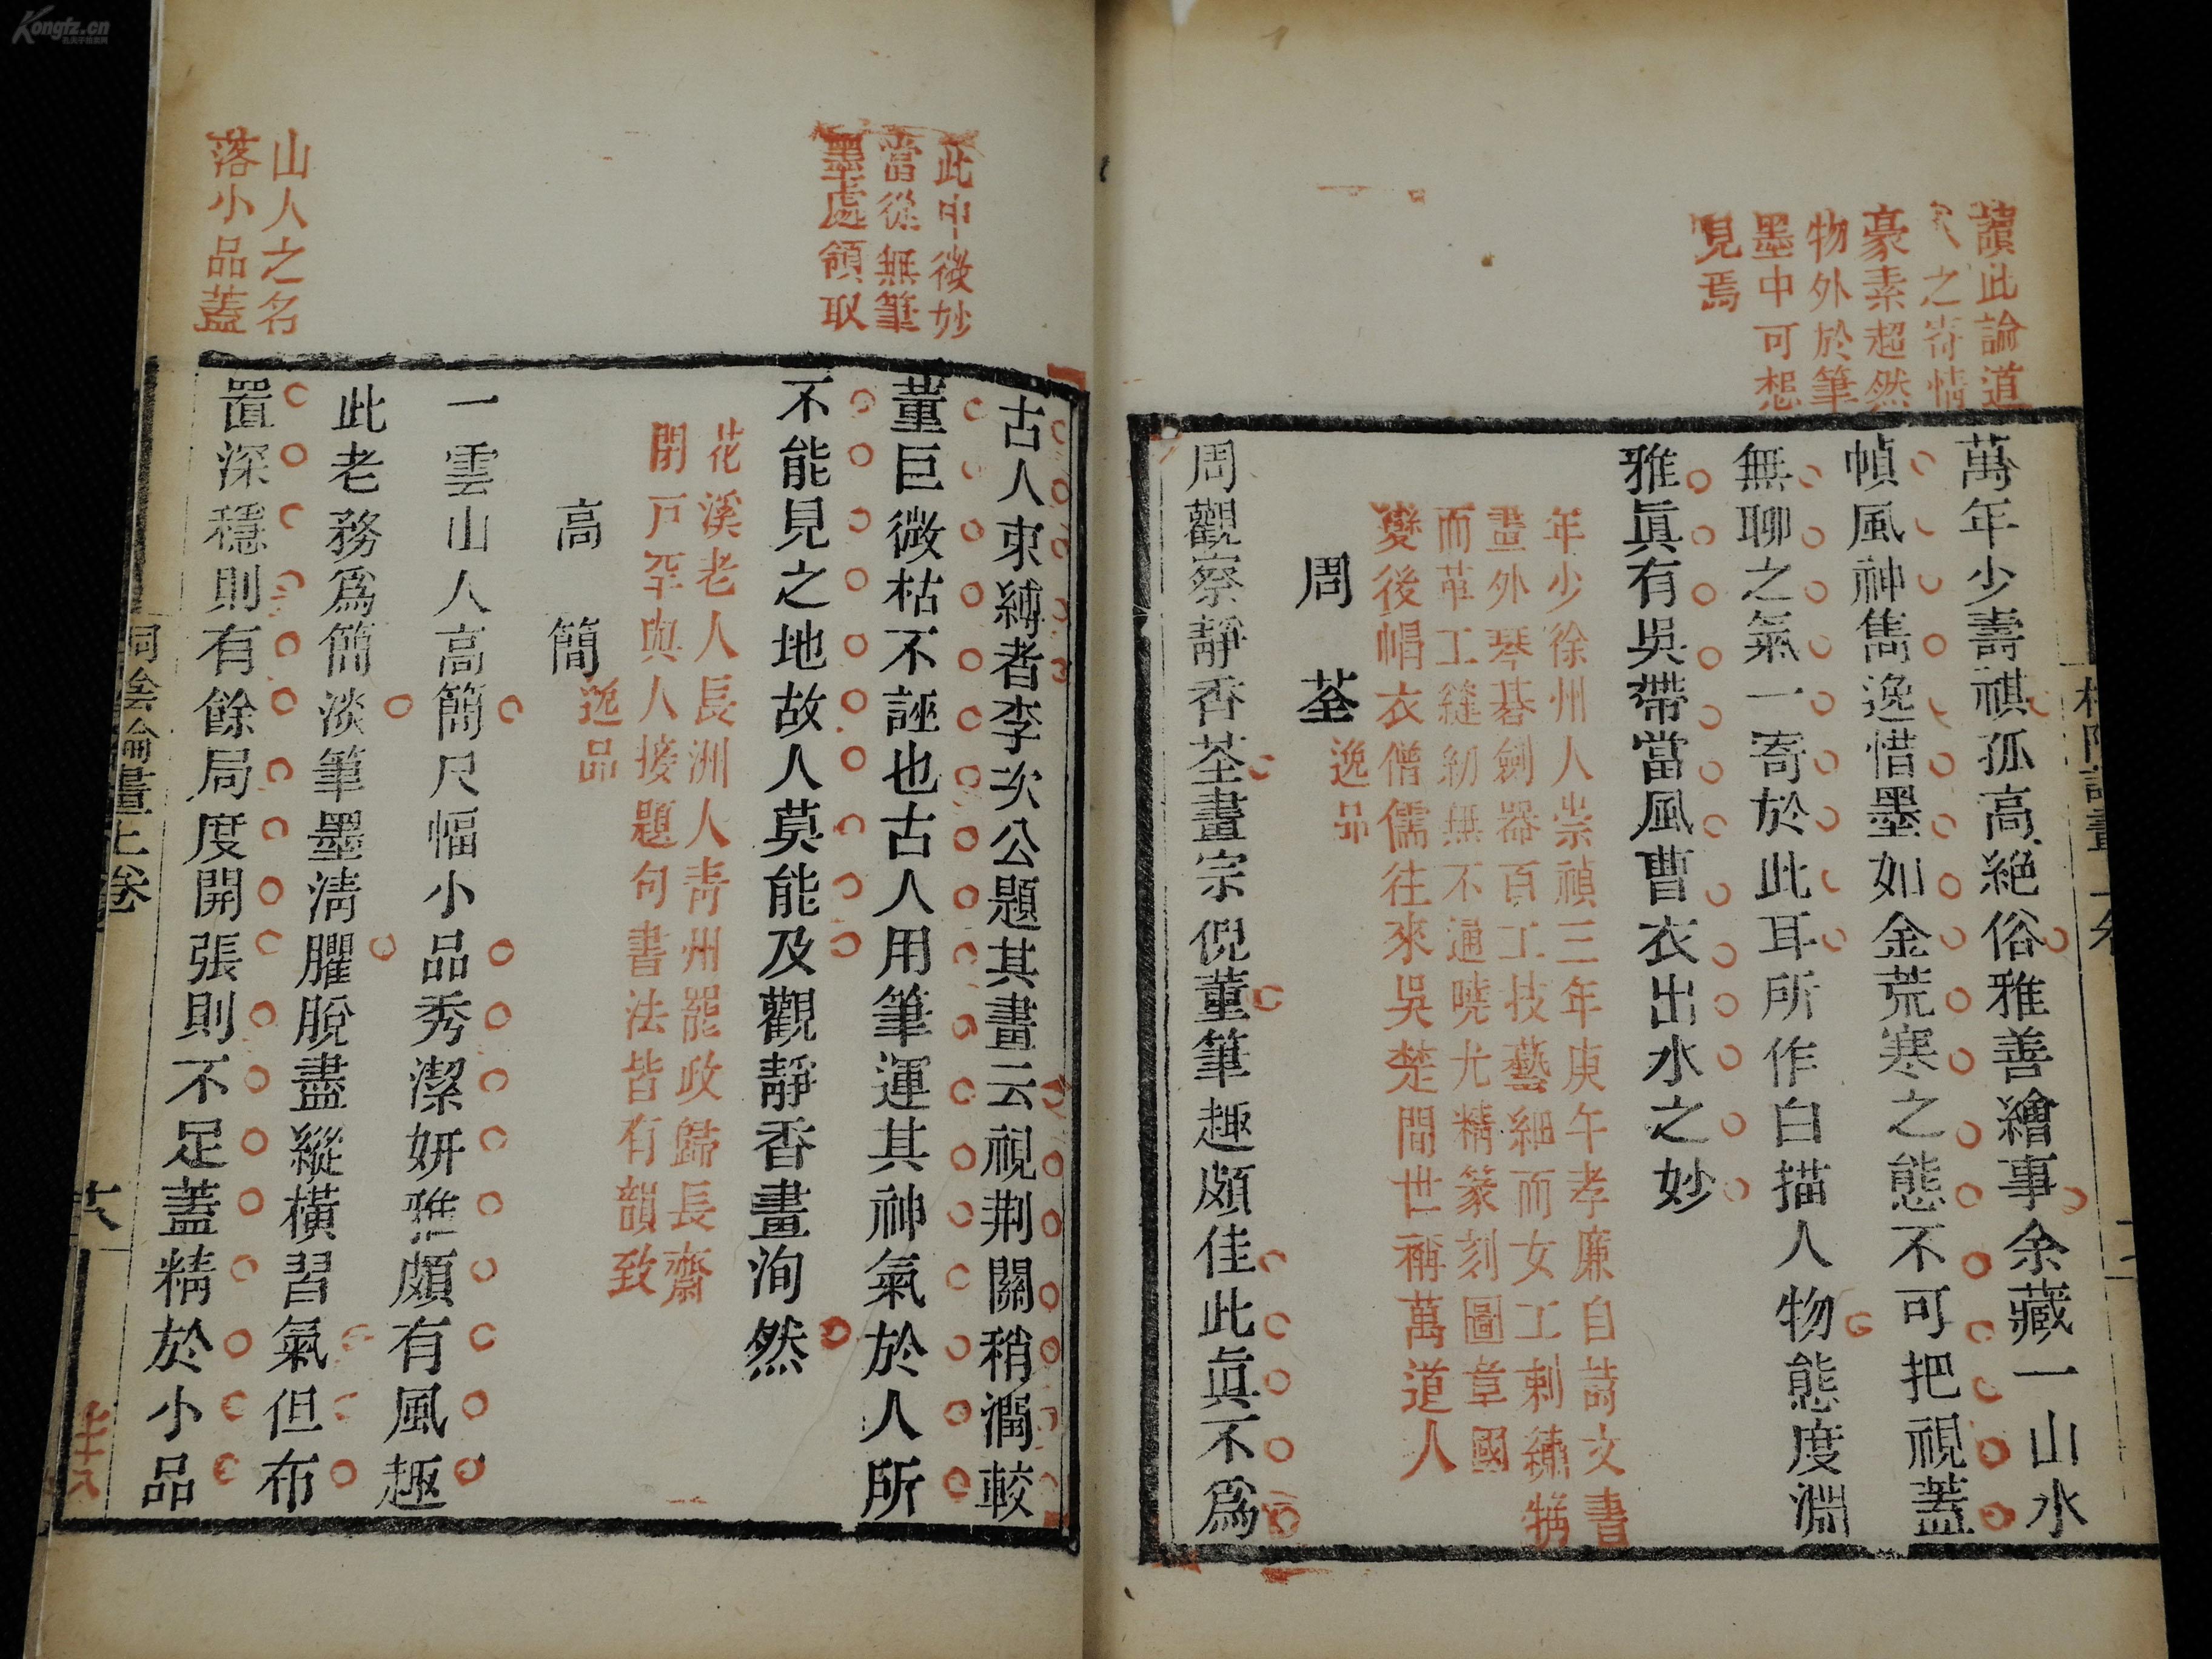 Kongfz.cn
孔夫子舊書網
讀此論道
人之寄情
豪素超然
物外於筆
墨中可想
見焉
萬年少壽祺孤高絶俗雅善繪事余藏一山水
幀風神雋逸惜墨如金荒寒之態不可把視蓋
無聊之氣一寄於此耳所作白描人物態度淵
雅眞有吳帶當風曹衣出水之妙
年少徐州人崇禎三年庚午孝廉自詩文書
畫外琴碁劍器百工技藝細而女工刺繡
而革工縫紉無不通曉尤精篆刻圖章國
變後帽衣僧儒往來吳楚間世稱萬道人
周荃 逸品
周觀察靜香荃畫宗倪董筆趣頗佳此眞不爲
此中微妙
當從無筆
墨處領取
古人束縛者李次公題其畫云視荆關稍濶較
董巨微枯不誣也古人用筆運其神氣於人所
不能見之地故人莫能及觀靜香畫洵然
花溪老人長洲人青州罷政歸長齋
閉戸罕與人接題句書法皆有韻致
高簡 逸品
山人之名
落小品蓋
一雲山人高簡尺幅小品秀潔妍雅頗有風趣
此老務爲簡淡筆墨淸臞脫盡縱橫習氣但布
置深穩則有餘局度開張則不足蓋精於小品
桐陰論畫上卷